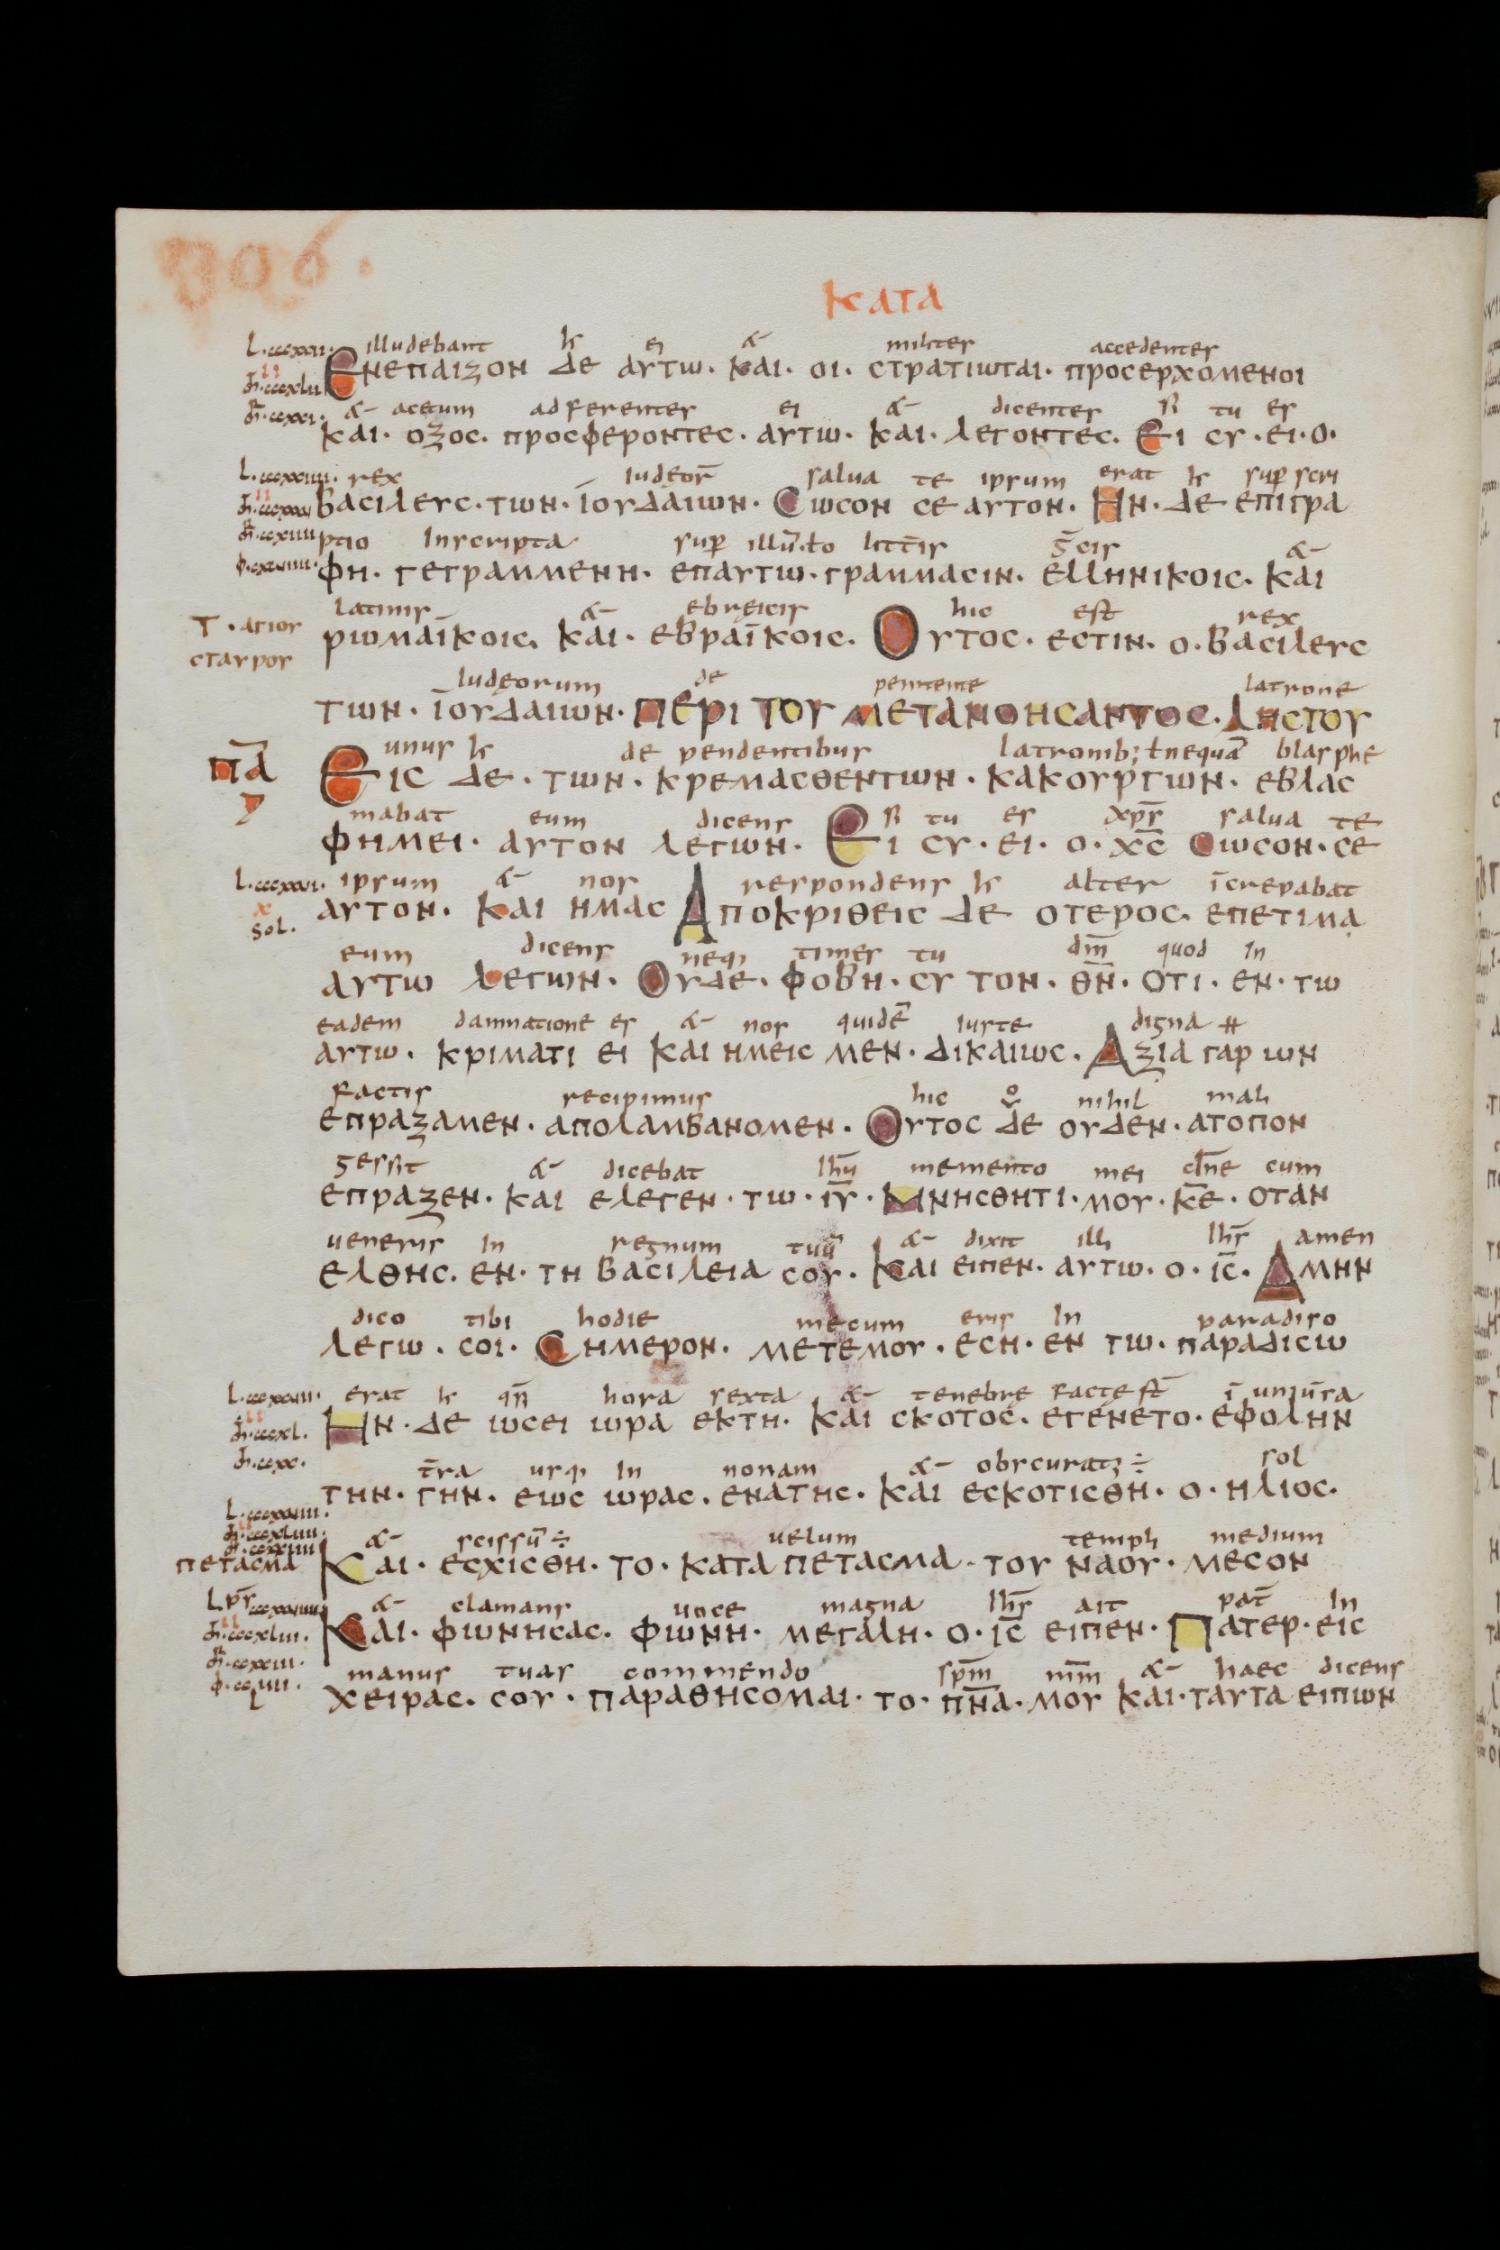 ΚΑΤΑ
illudebant h̵ ei & milites accedentes
ΕΝΕΠΑΙΖΟΝ ΔΕ ΑΥΤΩ · ΚΑΙ · ΟΙ · ϹΤΡΑΤΙΩΤΑΙ · ΠΡΟϹΕΡΧΟΜΕΝΟΙ
& acetum adferentes ei & dicentes si tu es
ΚΑΙ · ΟΞΟϹ · ΠΡΟϹΦΕΡΟΝΤΕϹ · ΑΥΤΩ · ΚΑΙ · ΛΕΓΟΝΤΕϹ · ΕΙ ϹΥ · ΕΙ · Ο ·
rex iudeoꝝ salua te ipsum erat h̵ suꝑ scri
ΒΑϹΙΛΕΥϹ · ΤΩΝ · ΪΟΥΔΑΙΩΝ · ϹΩϹΟΝ ϹΕ ΑΥΤΟΝ · ΗΝ · ΔΕ ΕΠΙΓΡΑ
ptio inscripta suꝑ illū · ł o litt̄is ḡcis &
ΦΗ · ΓΕΓΡΑΜΜΕΝΗ · ΕΠΑΥΤΩ · ΓΡΑΜΜΑϹΙΝ · ΕΛΛΗΝΙΚΟΙϹ · ΚΑΙ
latinis & ebreicis hic est rex
Τ · ΑΓΙΟΥ
ϹΤΑΥΡΟΥ
ΡΩΜΑΪΚΟΙϹ · ΚΑΙ · ΕΒΡΑΪΚΟΙϹ · ΟΥΤΟϹ · ΕϹΤΙΝ · Ο · ΒΑϹΙΛΕΥϹ
iudeorum de penitente latrone
ΤΩΝ · ΪΟΥΔΑΙΩΝ · ΠΕΡΙ ΤΟΥ ΜΕΤΑΝΟΗϹΑΝΤΟϹ · ΛΗϹΤΟΥ
unus h̵ de pendentibus latronib; ł nequā blasphe
ΠᾹ
ΕΙϹ ΔΕ · ΤΩΝ · ΚΡΕΜΑϹΘΕΝΤΩΝ · ΚΑΚΟΥΡΓΩΝ · ΕΒΛΑϹ
mabat eum dicens si tu es xp̄s salua te
ΦΗΜΕΙ · ΑΥΤΟΝ ΛΕΓΩΝ · ΕΙ ϹΥ · ΕΙ · Ο · Χ̅Ϲ̅ ϹΩϹΟΝ · ϹΕ
ipsum & nos respondens h̵ alter īcrepabat
Sol.
ΑΥΤΟΝ · ΚΑΙ ΗΜΑϹ ΑΠΟΚΡΙΘΕΙϹ ΔΕ ΟΤΕΡΟϹ · ΕΠΕΤΙΜΑ
eum dicens neqꝫ times tu dm̄ quod in
ΑΥΤΩ ΛΕΓΩΝ · ΟΥΔΕ · ΦΟΒΗ · ϹΥ ΤΟΝ · Θ̅Ν̅ · ΟΤΙ · ΕΝ · ΤΩ
eadem damnatione es & nos quidē iuste digna
ΑΥΤΩ · ΚΡΙΜΑΤΙ ΕΙ ΚΑΙ ΗΜΕΙϹ ΜΕΝ · ΔΙΚΑΙΩϹ · ΑΞΙΑ ΓΑΡ ΩΝ
factis recipimus hic nihil mali
ΕΠΡΑΞΑΜΕΝ · ΑΠΟΛΑΜΒΑΝΟΜΕΝ · ΟΥΤΟϹ ΔΕ ΟΥΔΕΝ · ΑΤΟΠΟΝ
gessit & dicebat ih̄u memento mei dn̄e cum
ΕΠΡΑΞΕΝ · ΚΑΙ ΕΛΕΓΕΝ · ΤΩ · Ι̅Υ̅ · ΜΝΗϹΘΗΤΙ · ΜΟΥ · Κ̅Ε̅ · ΟΤΑΝ
ueneris in regnum tuū & dixit illi ih̄s amen
ΕΛΘΗϹ · ΕΝ · ΤΗ ΒΑϹΙΛΕΙΑ ϹΟΥ · ΚΑΙ ΕΙΠΕΝ · ΑΥΤΩ · Ο · Ι̅Ϲ̅ · ΑΜΗΝ
dico tibi hodie mecum eris in paradiso
ΛΕΓΩ · ϹΟΙ · ϹΗΜΕΡΟΝ · ΜΕΤΕΜΟΥ · ΕϹΗ · ΕΝ ΤΩ · ΠΑΡΑΔΙϹΩ
erat h̵ qn̄ hora sexta & tenebre facte st̄ ī uniūsa
ΗΝ · ΔΕ ΩϹΕΙ ΩΡΑ ΕΚΤΗ · ΚΑΙ ϹΚΟΤΟϹ · ΕΓΕΝΕΤΟ · ΕΦΟΛΗΝ
t̄ra usqꝫ in nonam & obscuratꝫ ÷ sol
ΤΗΝ · ΓΗΝ · ΕΩϹ ΩΡΑϹ · ΕΝΑΤΗϹ · ΚΑΙ ΕϹΚΟΤΙϹΘΗ · Ο · ΗΛΙΟϹ ·
& scissū ÷ uelum templi medium
ΠΕΤΑϹΜΑ
ΚΑΙ · ΕϹΧΙϹΘΗ · ΤΟ · ΚΑΤΑΠΕΤΑϹΜΑ · ΤΟΥ ΝΑΟΥ · ΜΕϹΟΝ
& clamans uoce magna ih̄s ait pat̄ in
ΚΑΙ · ΦΩΝΗϹΑϹ · ΦΩΝΗ · ΜΕΓΑΛΗ · Ο · Ι̅Ϲ̅ ΕΙΠΕΝ · ΠΑΤΕΡ · ΕΙϹ
manus tuas commendo sp̄m m̄m & haec dicens
ΧΕΙΡΑϹ · ϹΟΥ · ΠΑΡΑΘΗϹΟΜΑΙ · ΤΟ · Π̅Ν̅Α̅ · ΜΟΥ ΚΑΙ · ΤΑΥΤΑ ΕΙΠΩΝ